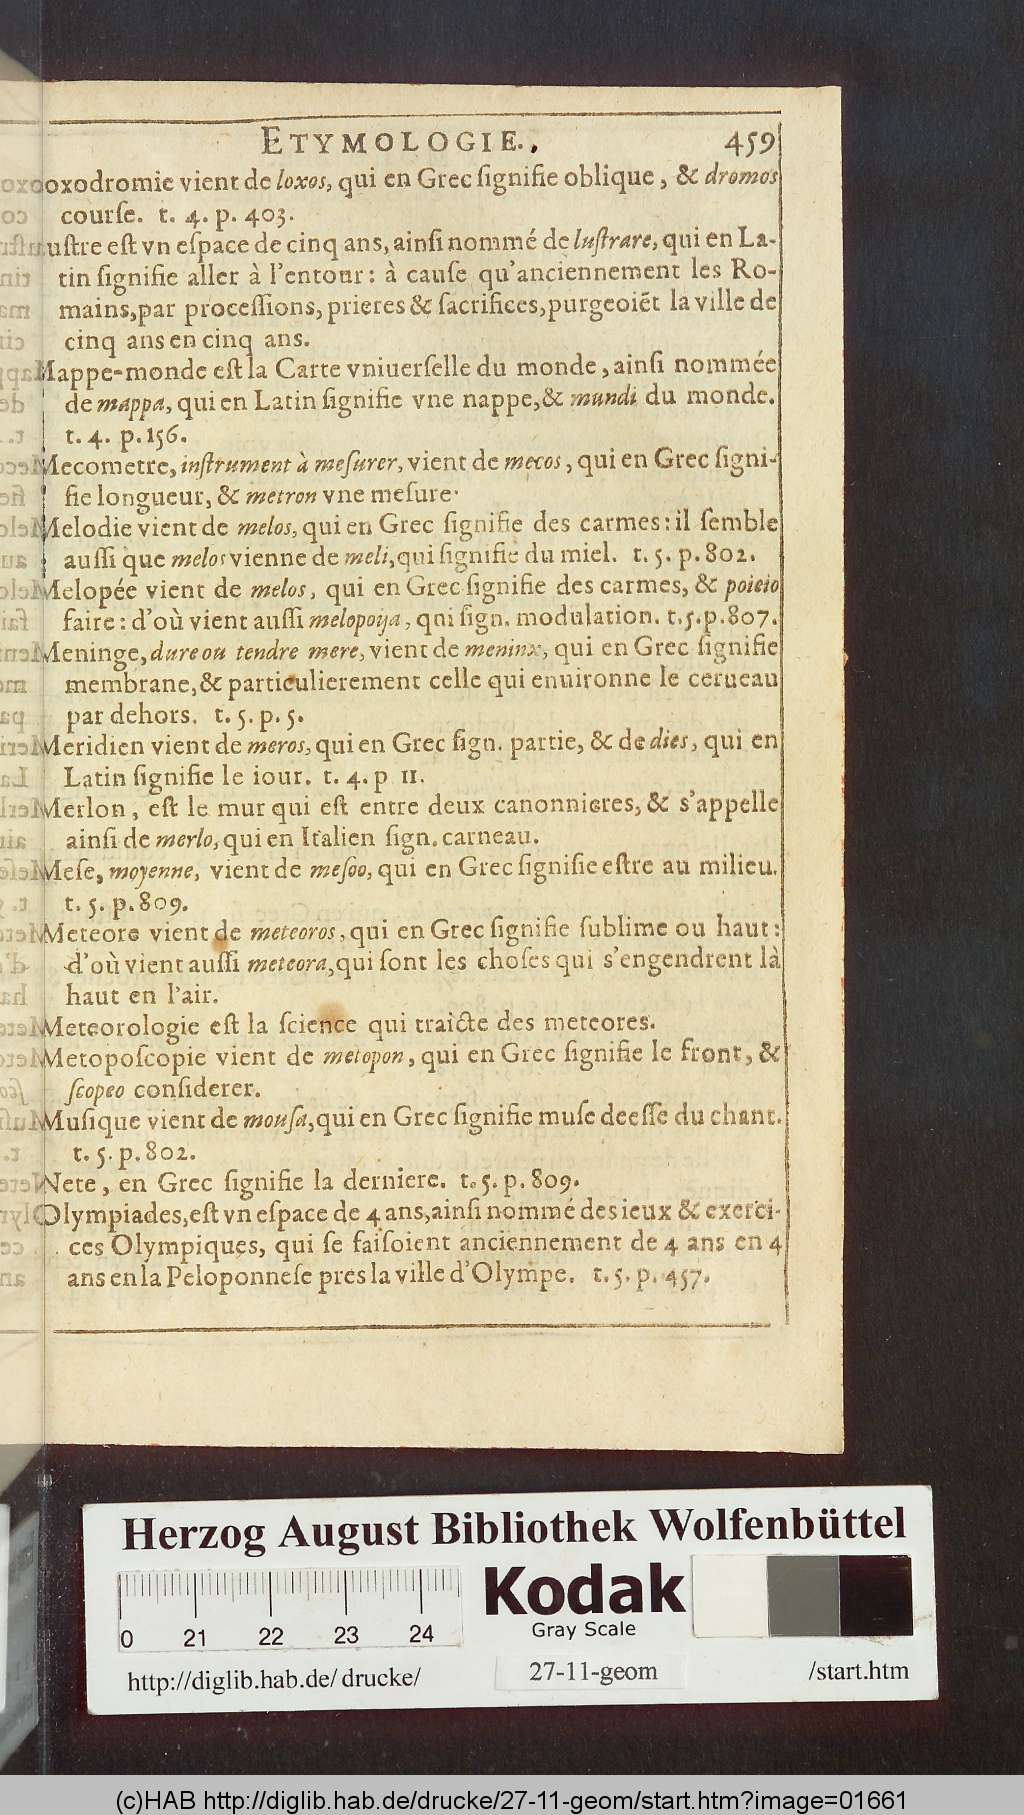 ETYMOLOGIE. 459
oxodromie vient de loxos, qui en Grec ſignifie oblique, & dromos
courſe. t. 4. p. 403.
uſtre eſt vn eſpace de cinq ans, ainſi nommé de luſtrare, qui en La-
tin ſignifie aller à l'entour: à cauſe qu'anciennement les Ro-
mains, par proceſſions, prieres & ſacrifices, purgeoiẽt la ville de
cinq ans en cinq ans.
Mappe-monde eſt la Carte vniuerſelle du monde, ainſi nommée
de mappa, qui en Latin ſignifie vne nappe, & mundi du monde.
t. 4. p. 156.
Mecometre, inſtrument à meſurer, vient de mecos, qui en Grec ſigni-
fie longueur, & metron vne meſure.
Melodie vient de melos, qui en Grec ſignifie des carmes: il ſemble
auſſi que melos vienne de meli, qui ſignifie du miel. t. 5. p. 802.
Melopée vient de melos, qui en Grec ſignifie des carmes, & poieio
faire: d'où vient auſſi melopoija, qui ſign. modulation. t. 5. p. 807.
Meninge, dure ou tendre mere, vient de meninx, qui en Grec ſignifie
membrane, & particulierement celle qui enuironne le cerueau
par dehors. t. 5. p. 5.
Meridien vient de meros, qui en Grec ſign. partie, & de dies, qui en
Latin ſignifie le iour. t. 4. p 11.
Merlon, eſt le mur qui eſt entre deux canonnieres, & s'appelle
ainſi de merlo, qui en Italien ſign. carneau.
Meſe, moyenne, vient de meſoo, qui en Grec ſignifie eſtre au milieu.
t. 5. p. 809.
Meteore vient de meteoros, qui en Grec ſignifie ſublime ou haut:
d'où vient auſſi meteora, qui ſont les choſes qui s'engendrent là
haut en l'air.
Meteorologie eſt la ſcience qui traicte des meteores.
Metopoſcopie vient de metopon, qui en Grec ſignifie le front, &
ſcopeo conſiderer.
Muſique vient de mouſa, qui en Grec ſignifie muſe deeſſe du chant.
t. 5. p. 802.
Nete, en Grec ſignifie la derniere. t. 5. p. 809.
Olympiades, eſt vn eſpace de 4 ans, ainſi nommé des ieux & exerci-
ces Olympiques, qui ſe faiſoient anciennement de 4 ans en 4
ans en la Peloponneſe pres la ville d'Olympe. t. 5. p. 457.
Herzog August Bibliothek Wolfenbüttel
Kodak
Gray Scale
0 21 22 23 24
http://diglib.hab.de/drucke/ 27-11-geom /start.htm
(c)HAB http://diglib.hab.de/drucke/27-11-geom/start.htm?image=01661